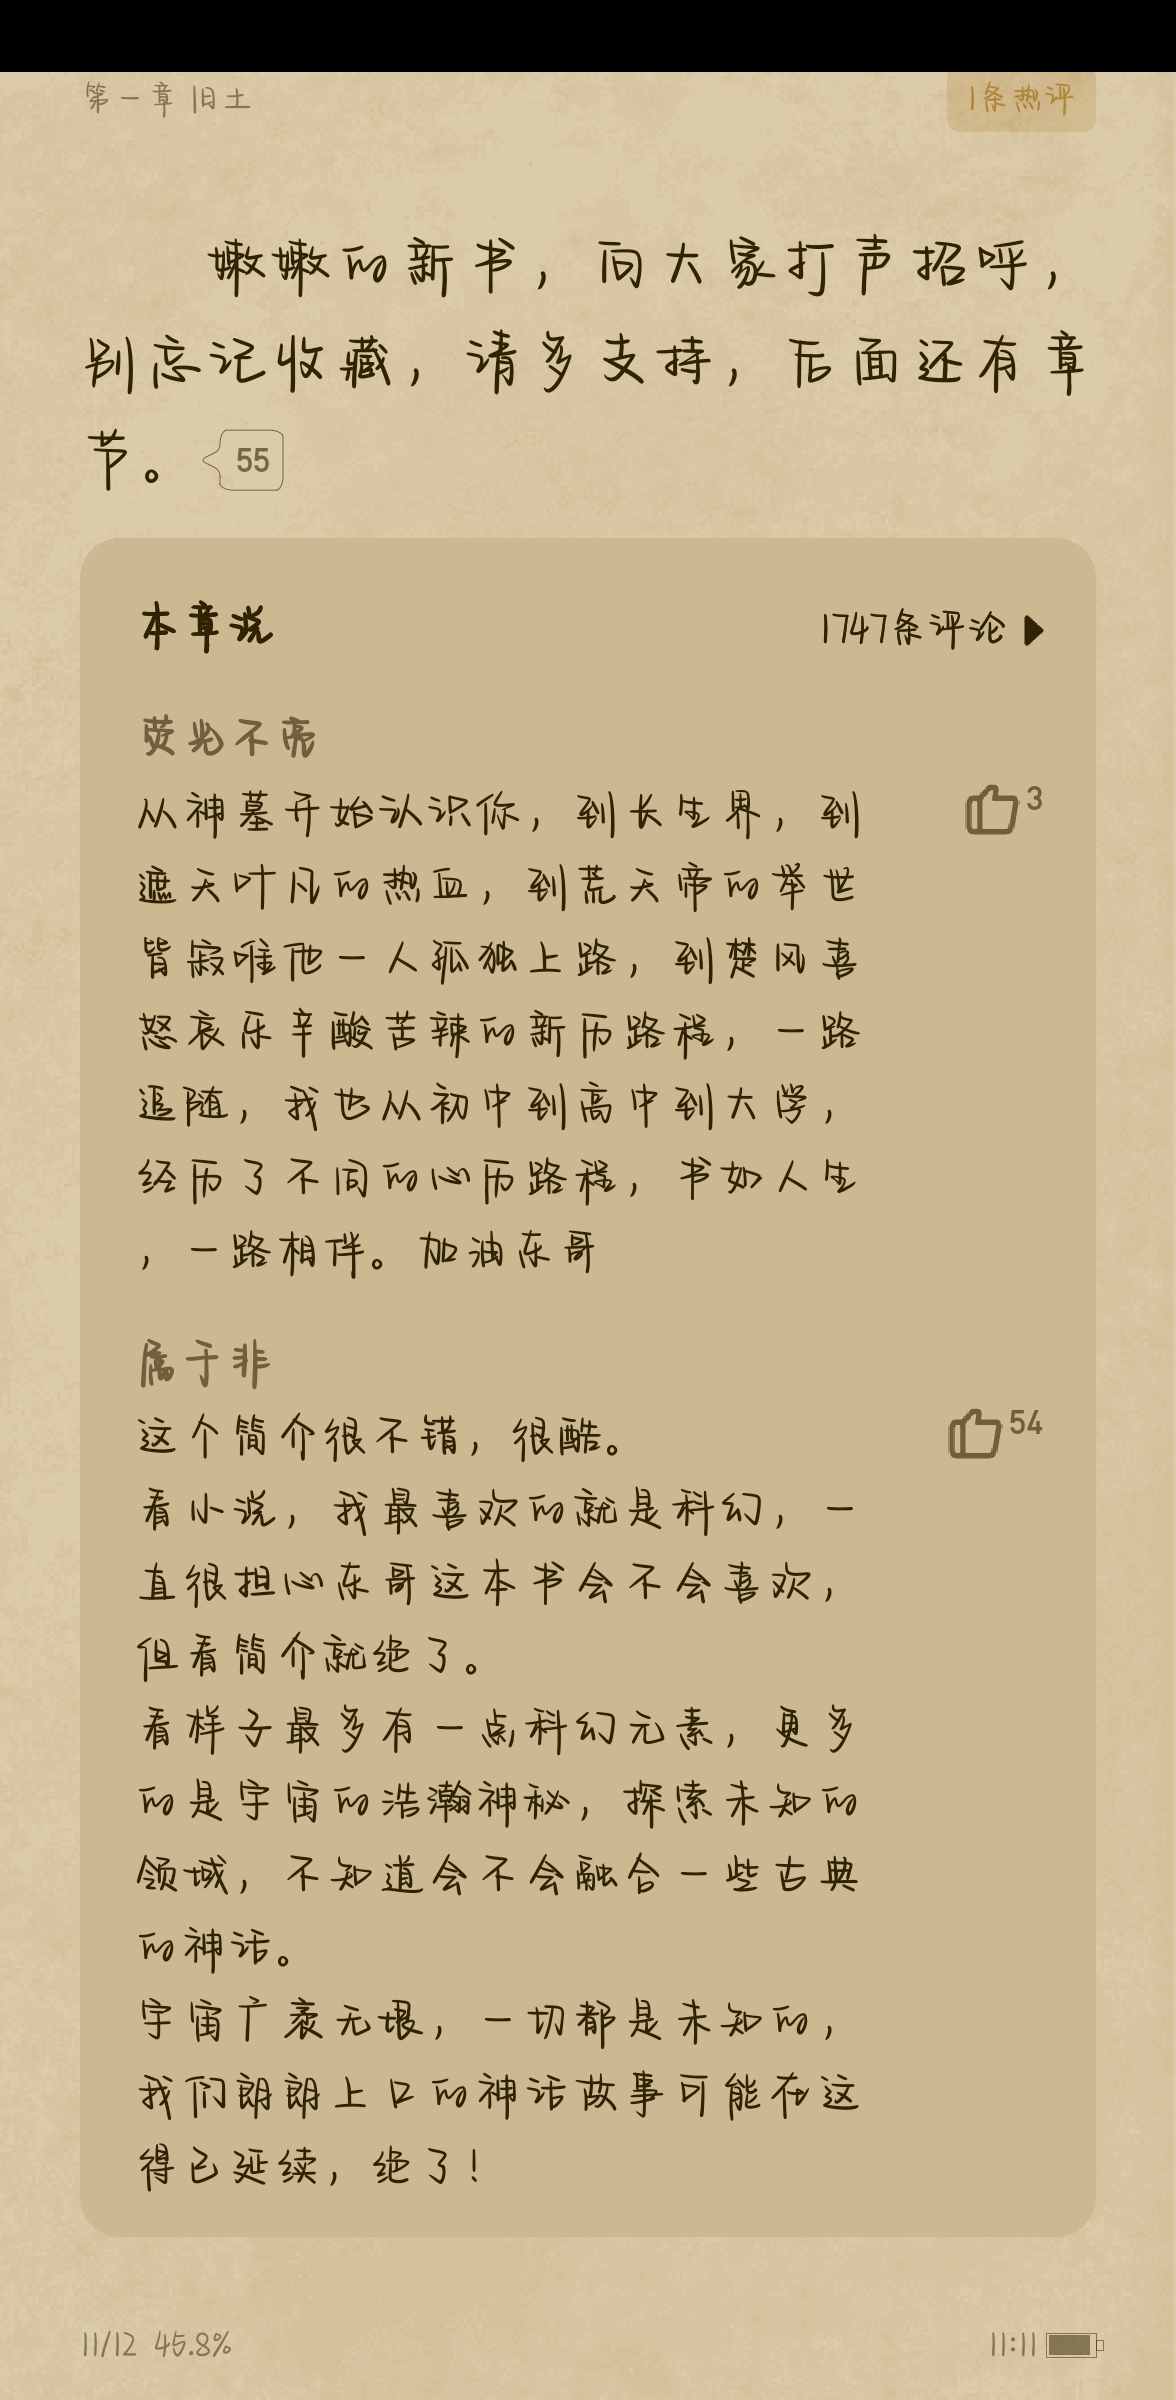 第一章 旧土
1条热评
嫩嫩的新书，向大家打声招呼，
别忘记收藏，请多支持，后面还有章
节。 55
本章说
1747条评论
荧光不亮
从神墓开始认识你，到长生界，到
遮天叶凡的热血，到荒天帝的举世
皆寂唯他一人孤独上路，到楚风喜
怒哀乐辛酸苦辣的新历路程，一路
追随，我也从初中到高中到大学，
经历了不同的心历路程，书如人生
，一路相伴。加油东哥
3
属于非
这个简介很不错，很酷。
54
看小说，我最喜欢的就是科幻，一
直很担心东哥这本书会不会喜欢，
但看简介就绝了。
看样子最多有一点科幻元素，更多
的是宇宙的浩瀚神秘，探索未知的
领域，不知道会不会融合一些古典
的神话。
宇宙广袤无垠，一切都是未知的，
我们朗朗上口的神话故事可能在这
得已延续，绝了！
11/12 45.8%
11:11